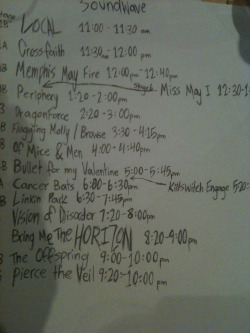 Soundwave
LOCAL 11:00 - 11:30 am
Crossfaith 11:30am - 12:00 pm
Memphis May Fire 12:00pm - 12:40pm
Miss May I 12:30-1
Periphery 1:20 - 2:00pm
DragonForce 2:20 - 3:00pm
Flogging Molly / Browse 3:30 - 4:15pm
Of Mice & Men 4:00 - 4:40pm
Bullet for my Valentine 5:00 - 5:45pm
Cancer Bats 6:00 - 6:30pm
Killswitch Engage 5:20
Linkin Park 6:30 - 7:45pm
Vision of Disorder 7:20 - 8:00pm
Bring Me The HORIZON 8:20 - 9:00pm
The Offspring 9:00 - 10:00pm
Pierce the Veil 9:20 - 10:00pm